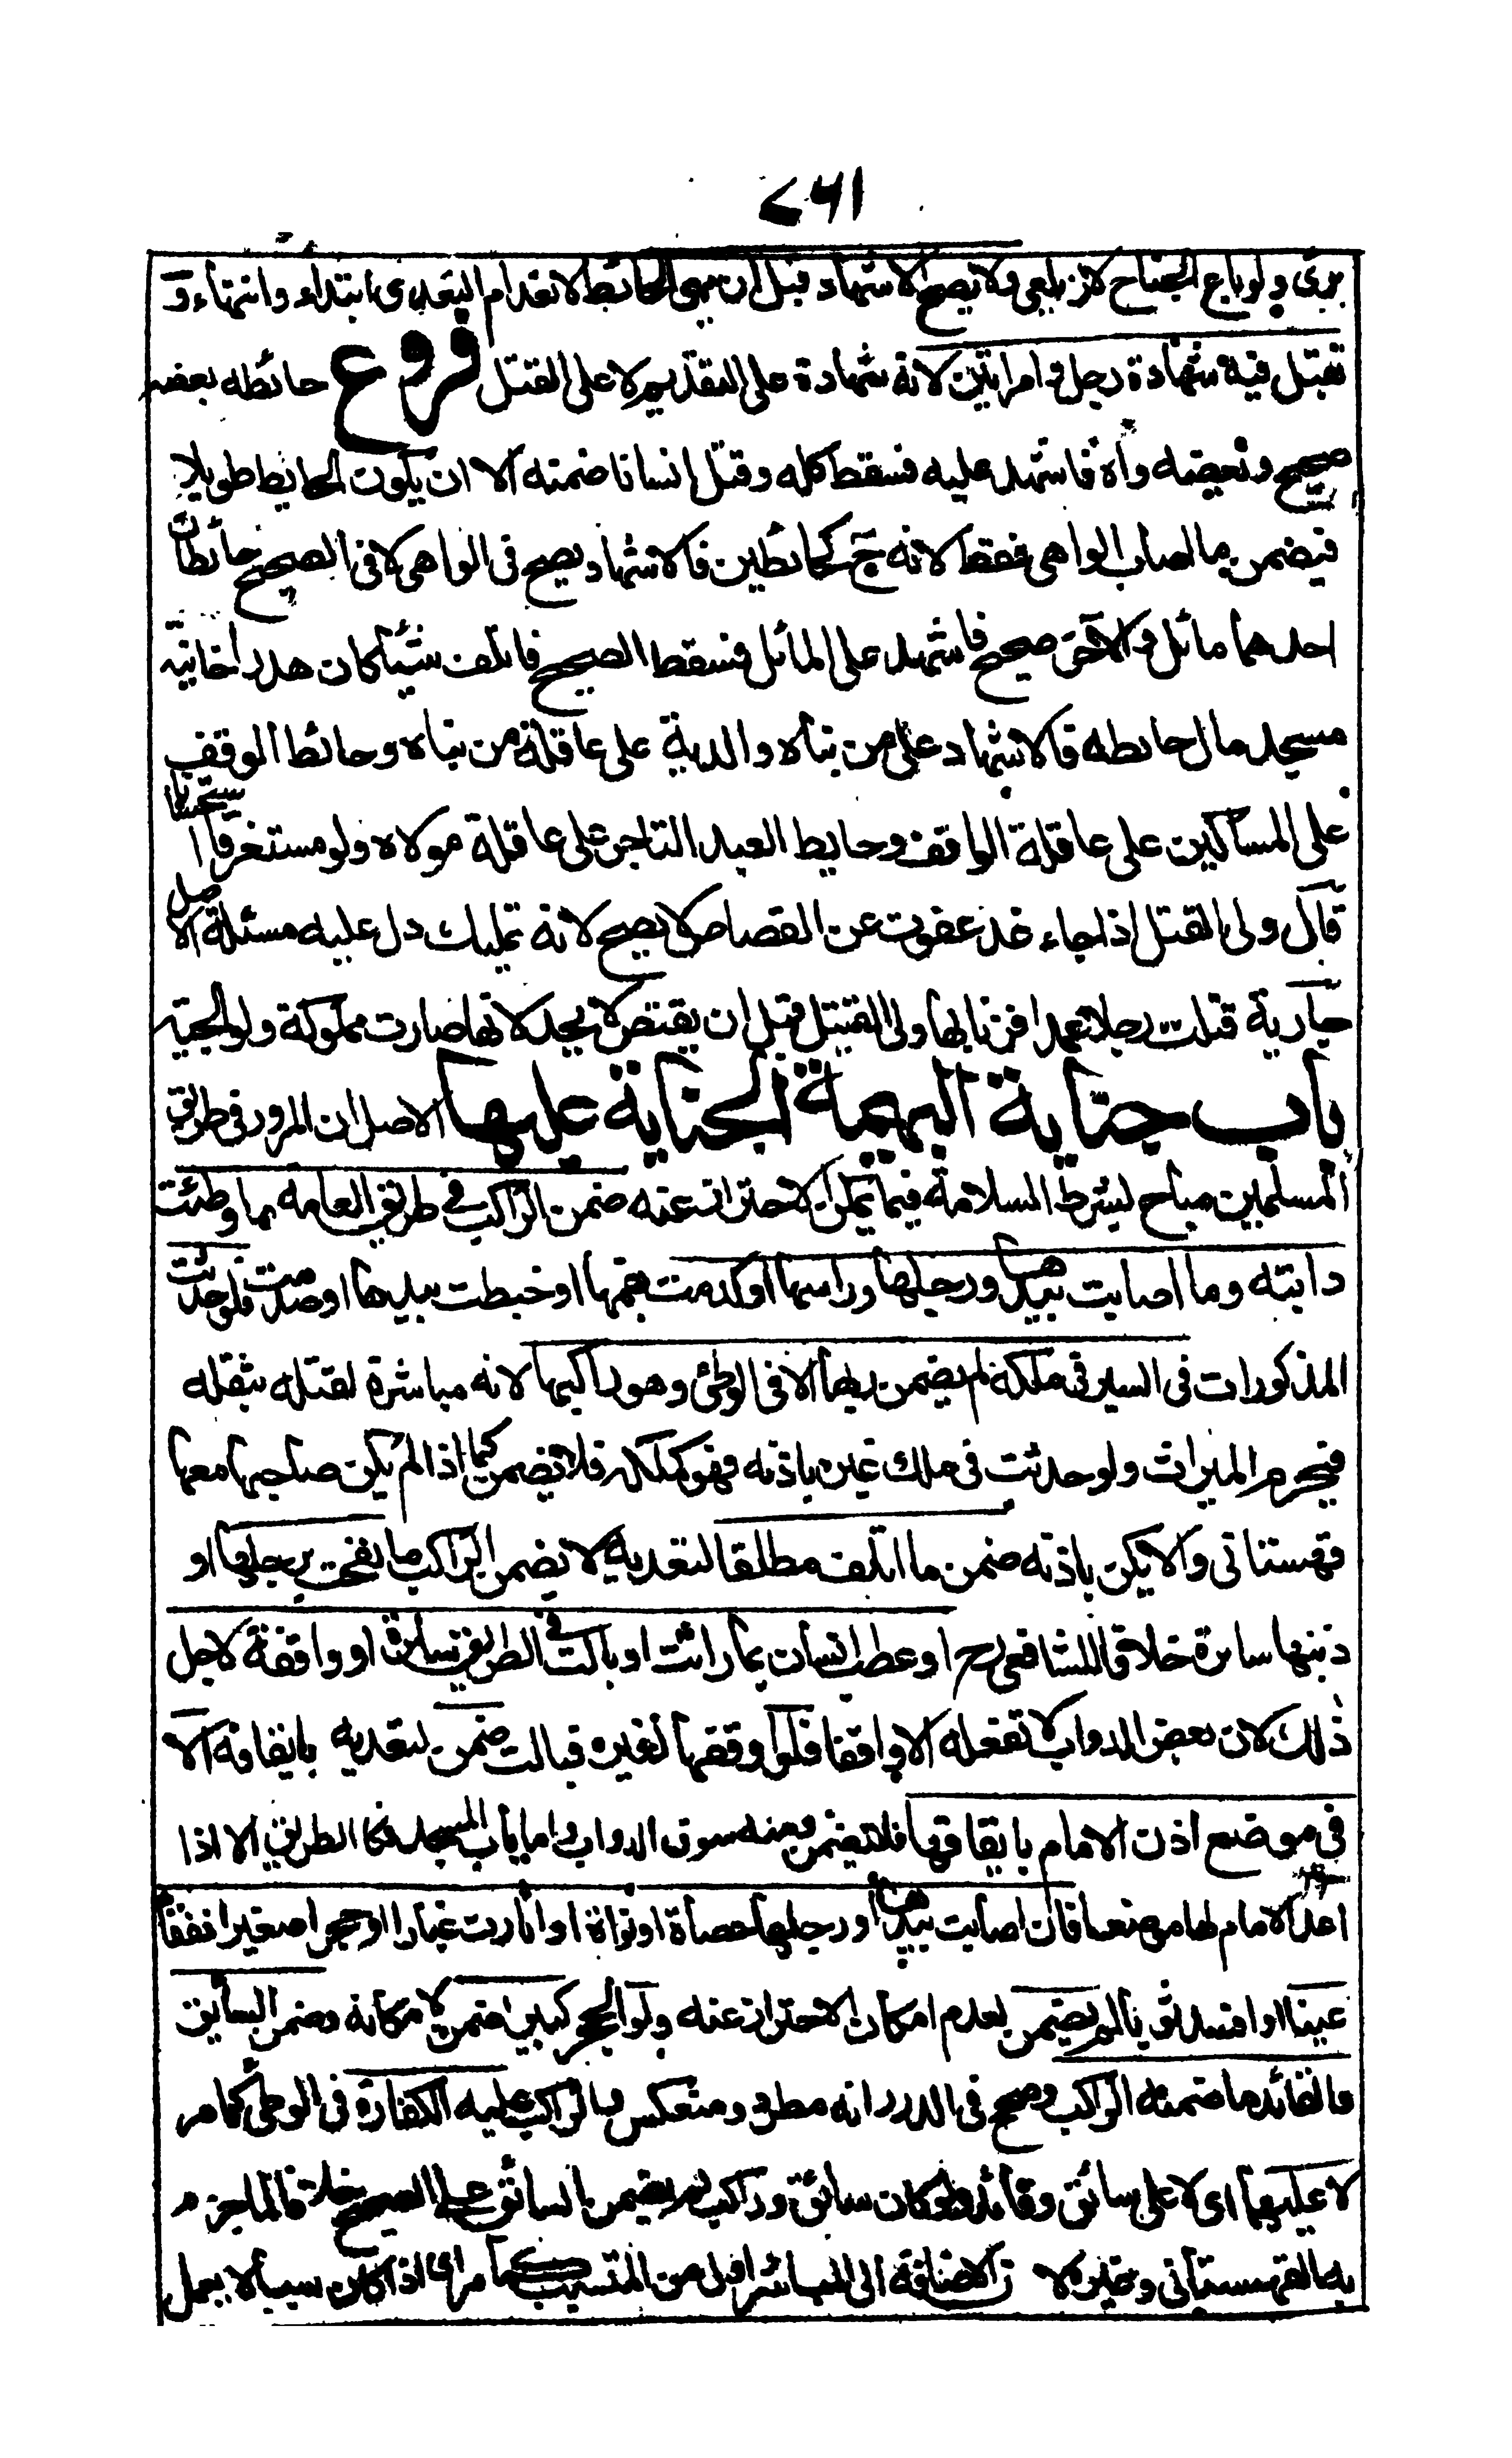 ٢٦١
برئ ولو باع الجناح لا زيلعي ولا يصح الاشهاد قبل ان يهي الحائط لانعدام التعدي ابتداء وانتهاء و
تقبل فيه شهادة رجل وامراتين لانه شهادة على التقديم لا على القتل فروع حائطه بعضه
صحيح وبعضه واه فاشهد عليه فسقط كله وقتل انسانا ضمنه الا ان يكون الحايط طويلا
فيضمن ما اصاب الواهي فقط لانه ح كحائطين فالاشهاد يصح في الواهي لا في الصحيح حائطان
احدهما مائل والاخر صحيح فاشهد على المائل فسقط الصحيح فاتلف شيئا كان هدرا خانية
مسجد مال حائطه فالاشهاد على من بناه والدية على عاقلة من بناه وحائط الوقف
على المساكين على عاقلة الواقف وحايط العبد التاجر على عاقلة مولاه ولو مستغرقا استحسانا
قال ولي القتل اذا جاء غد عفوت عن القصاص لا يصح لانه تمليك دل عليه مسئلة الاصل
جارية قتلت رجلا عمدا فزنا بها ولي القتيل قبل ان يقتص لا يحد لانها صارت مملوكة ولوالجية
باب جناية البهيمة الجناية عليها الاصل ان المرور في طريق
المسلمين مباح بشرط السلامة فيما يمكن الاحتراز عنه ضمن الراكب في طريق العامة ما وطئت
دابته وما اصابت بيدها ورجلها وراسها او كدمت بفمها او خبطت بيدها او صدمت فلو حدثت
المذكورات في السير في ملكه لم يضمن ربها الا في الوطئ وهو راكبها لانه مباشرة لقتله بثقله
فيحرم الميراث ولو حدثت في ملك غيره باذنه فهو كملكه فلا يضمن كما اذا لم يكن صاحبها معها
قهستاني والا يكن باذنه ضمن ما اتلف مطلقا لتعديه لا يضمن الراكب ما نفحت برجلها او
ذنبها سائرة خلافا للشافعي رح او عطب انسان بما راثت او بالت في الطريق سائرة او واقفة لاجل
ذلك لان بعض الدواب لا تفعله الا واقفا فلو اوقفها لغيره فبالت ضمن لتعديه بايقافه الا
في موضع اذن الامام بايقافها فلا يضمن ومنه سوق الدواب واما باب المسجد فكالطريق الا اذا
اعد الامام لها موضعا فان اصابت بيدها او رجلها حصاة او نواة او اثارت غبارا او حجرا صغيرا ففقأ
عينا او افسد ثوبا لم يضمن لعدم امكان الاحتراز عنه ولو الحجر كبيرا ضمن لامكانه وضمن السائق
والقائد ما ضمنه الراكب وصحح في الدرر انه مطرد ومنعكس والراكب عليه الكفارة في الوطئ كما مر
لا عليهما اي لا على سائق وقائد ولو كان سائق وراكب لم يضمن السائق على الصحيح خلافا لما جزم
به القهستاني وغيره لان الاضافة الى المباشر اولى من المتسبب كما مر اي اذا كان سببا لا يعمل